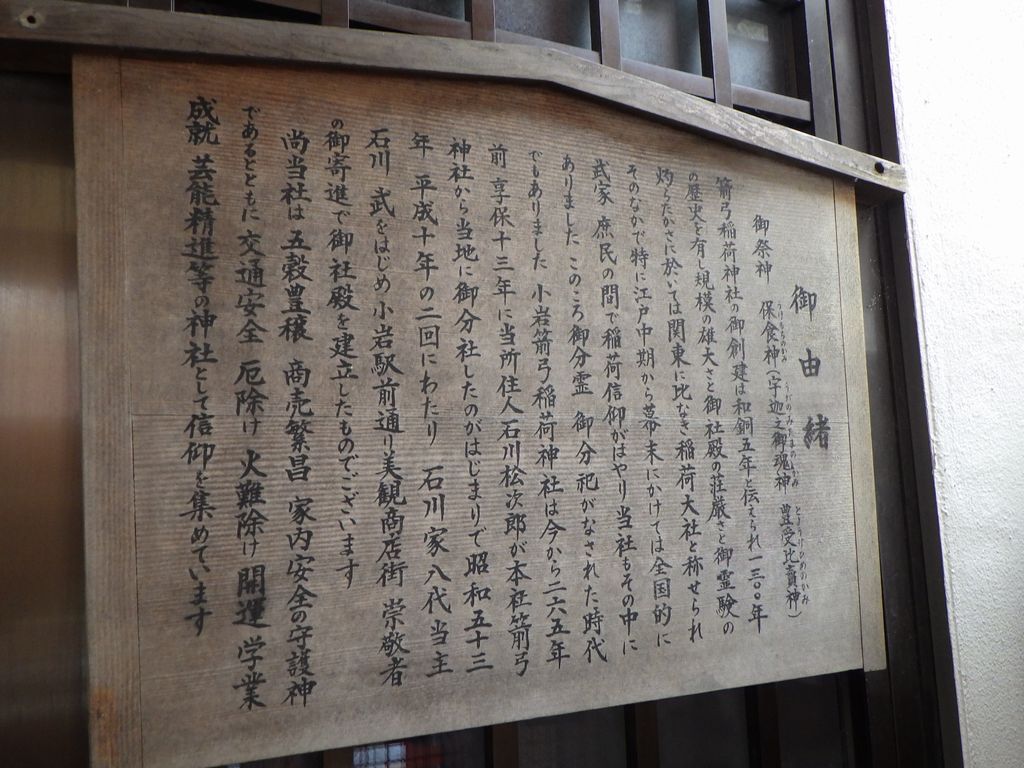 御由緒
御祭神 保食神(宇迦之御魂神 豊受比賣神)
箭弓稲荷神社の御創建は和銅五年と伝えられ一三〇〇年
の歴史を有し規模の雄大さと御社殿の荘厳さと御霊験の
灼らたかさに於いては関東に比なき稲荷大社と称せられ
そのなかで特に江戸中期から幕末にかけては全国的に
武家 庶民の間で稲荷信仰がはやり当社もその中に
ありました このころ御分霊 御分祀がなされた時代
でもありました 小岩箭弓稲荷神社は今から二六五年
前 享保十三年に当所住人石川松次郎が本社箭弓
神社から当地に御分社したのがはじまりで昭和五十三
年 平成十年の二回にわたり 石川家八代当主
石川 武をはじめ小岩駅前通り美観商店街 崇敬者
の御寄進で御社殿を建立したものでございます
尚当社は五穀豊穣 商売繁昌 家内安全の守護神
であるとともに交通安全 厄除け 火難除け 開運 学業
成就 芸能精進等の神社として信仰を集めています